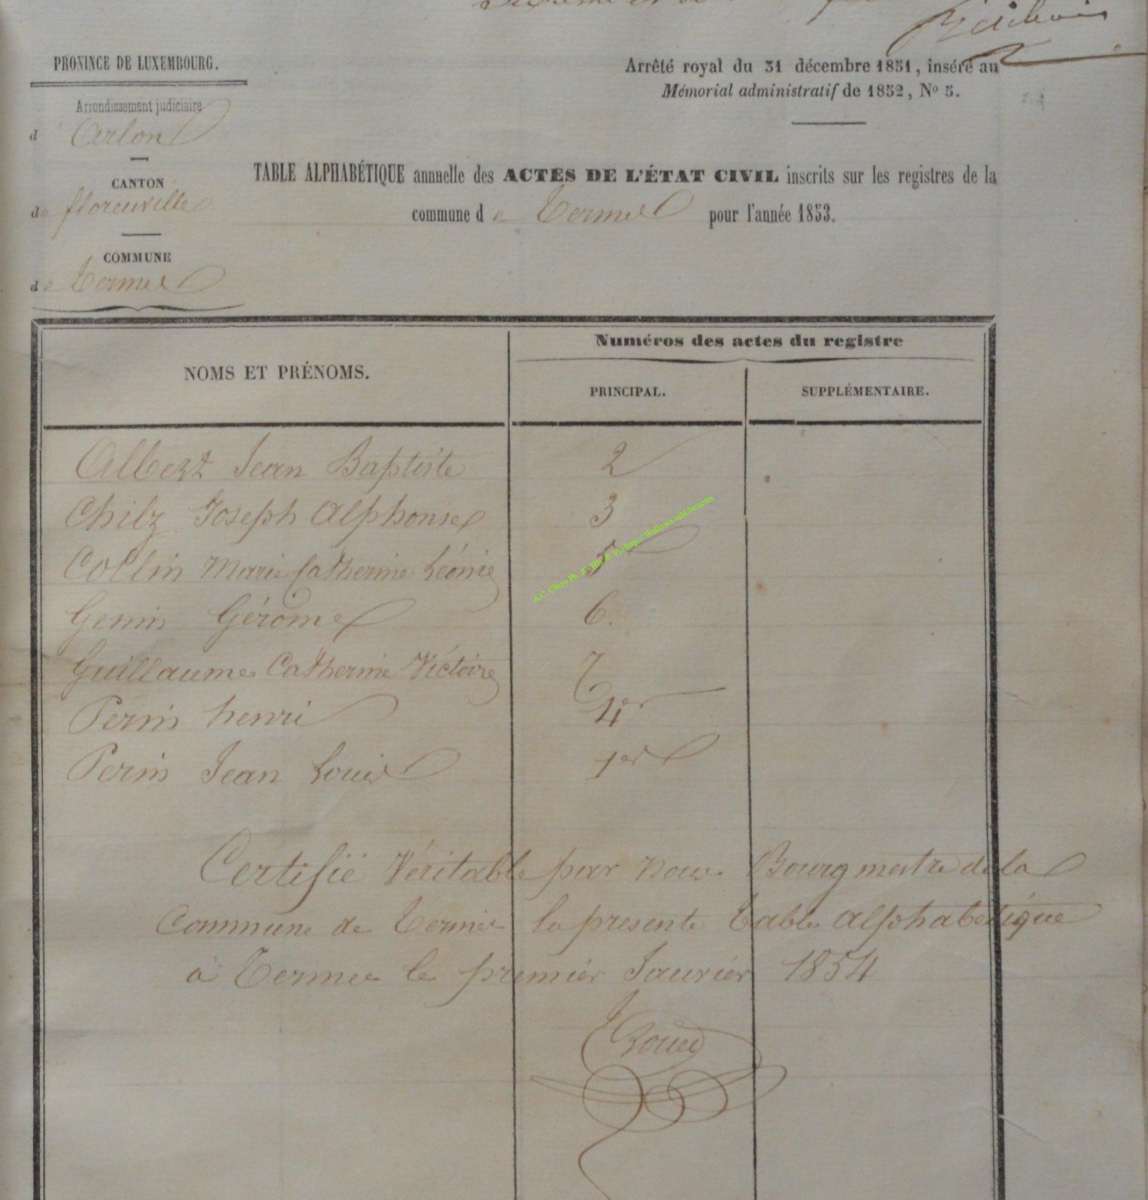 PROVINCE DE LUXEMBOURG.
Arrondissement judiciaire
d Arlon
CANTON
de florenville
COMMUNE
de Termes
Arrêté royal du 31 décembre 1851, inséré au
Mémorial administratif de 1852, No 5.
TABLE ALPHABÉTIQUE annuelle des ACTES DE L'ÉTAT CIVIL inscrits sur les registres de la
commune de Termes pour l'année 1853.
NOMS ET PRÉNOMS.
Numéros des actes du registre
PRINCIPAL.
SUPPLÉMENTAIRE.
Albert Jean Baptiste 2
Chilz Joseph Alphonse 3
Collin Marie Catherine Léonie 5
Genin Gérome 6
Guillaume Catherine Victoire 7
Perin henri 4
Perin Jean Louis 1er
Certifié Véritable par nous Bourgmestre de la
Commune de Termes la presente table alphabetique
à Termes le premier Janvier 1854